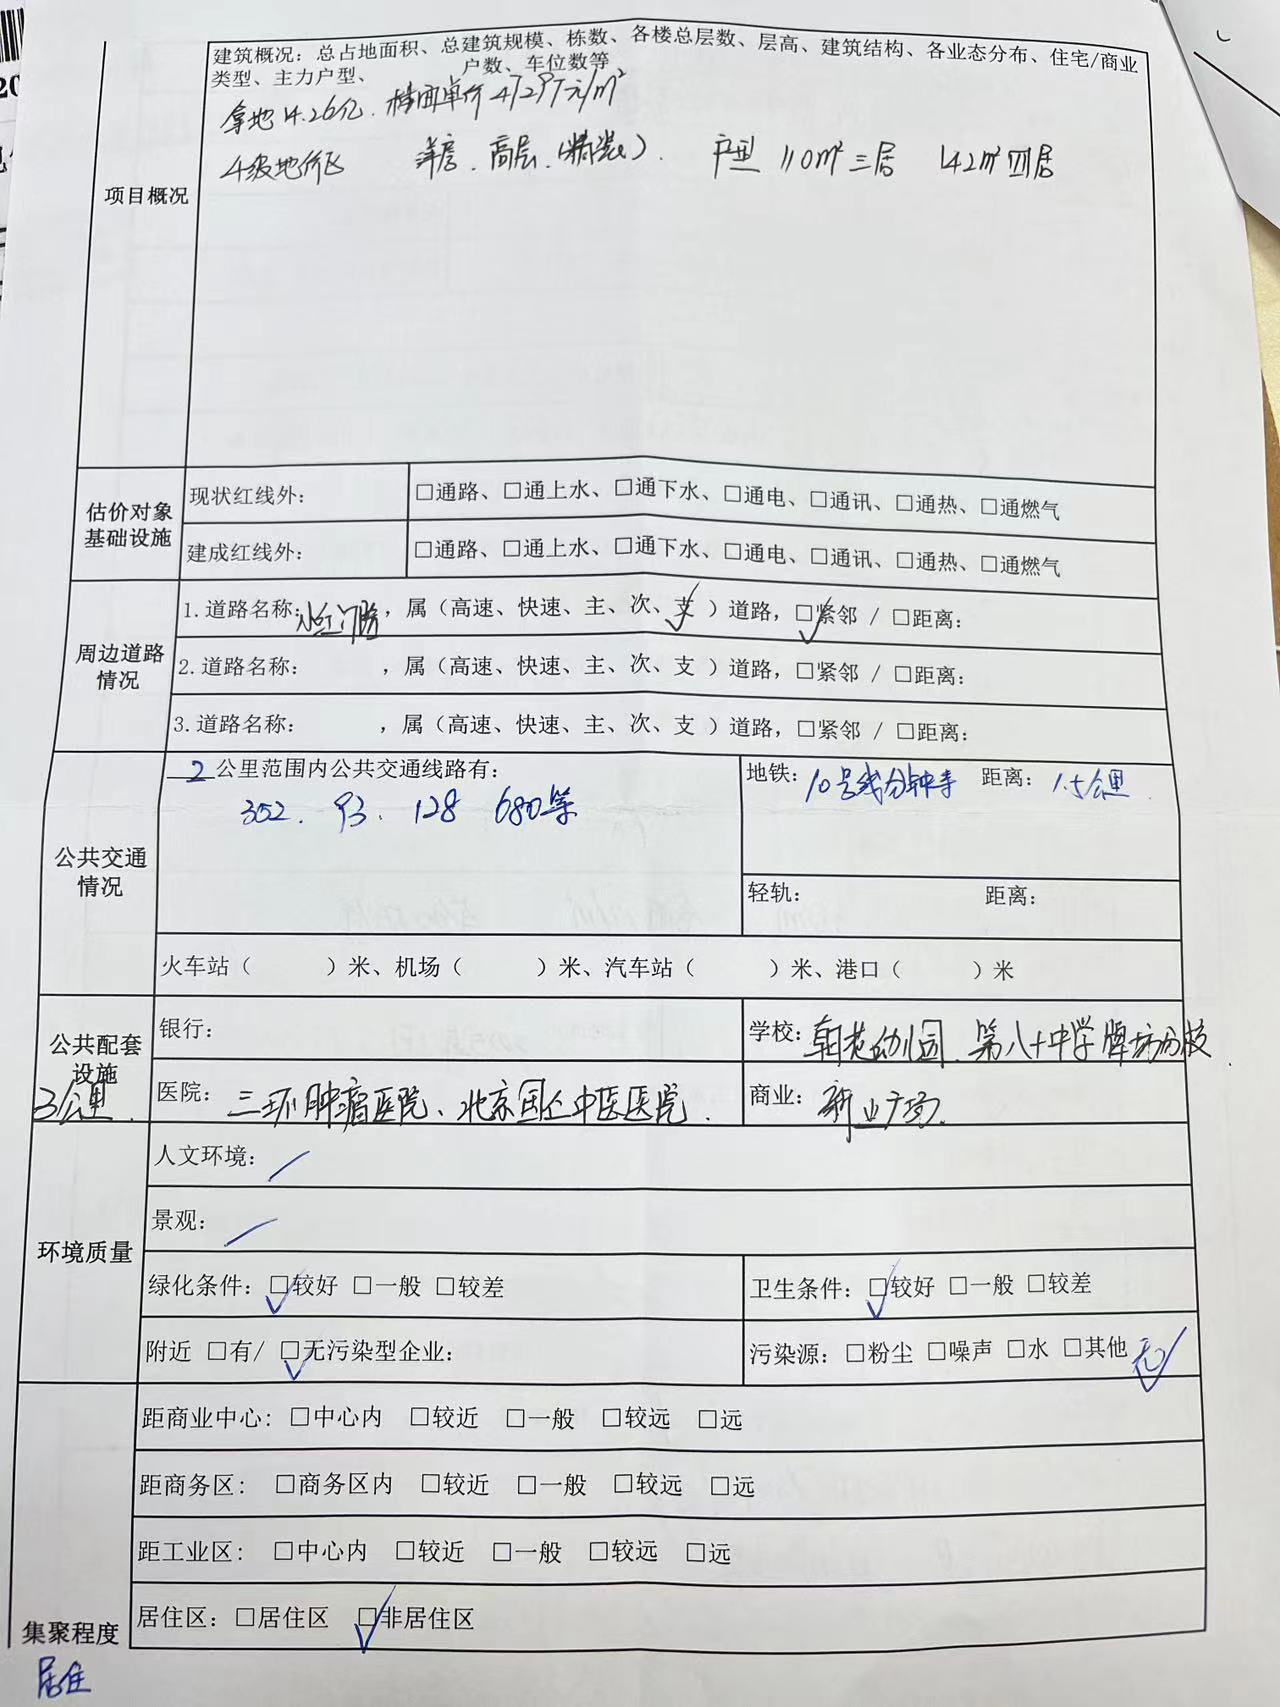 建筑概况：总占地面积、总建筑规模、栋数、各楼总层数、层高、建筑结构、各业态分布、住宅/商业
类型、主力户型、 户数、车位数等
拿地4.26亿. 楼面单价47297元/m²
4级地价区 洋房、高层、(精装). 户型 110m²三居 142m²四居
项目概况
估价对象
基础设施
现状红线外： □通路、□通上水、□通下水、□通电、□通讯、□通热、□通燃气
建成红线外： □通路、□通上水、□通下水、□通电、□通讯、□通热、□通燃气
周边道路
情况
1.道路名称：小红门路，属（高速、快速、主、次、支✓）道路，□✓紧邻 / □距离：
2.道路名称： ，属（高速、快速、主、次、支 ）道路，□紧邻 / □距离：
3.道路名称： ，属（高速、快速、主、次、支 ）道路，□紧邻 / □距离：
公共交通
情况
2公里范围内公共交通线路有：
352. 93. 128 680等
地铁：10号线分钟寺 距离：1.5公里
轻轨： 距离：
火车站（ ）米、机场（ ）米、汽车站（ ）米、港口（ ）米
公共配套
设施
3公里.
银行：
学校：朝花幼儿园、第八十中学牌坊分校
医院：三环肿瘤医院、北京国仁中医医院.
商业：新业广场.
环境质量
人文环境：/
景观：/
绿化条件：□✓较好 □一般 □较差
卫生条件：□✓较好 □一般 □较差
附近 □有/ □✓无污染型企业：
污染源：□粉尘 □噪声 □水 □其他 无✓
集聚程度
居住
距商业中心：□中心内 □较近 □一般 □较远 □远
距商务区：□商务区内 □较近 □一般 □较远 □远
距工业区：□中心内 □较近 □一般 □较远 □远
居住区：□居住区 □✓非居住区